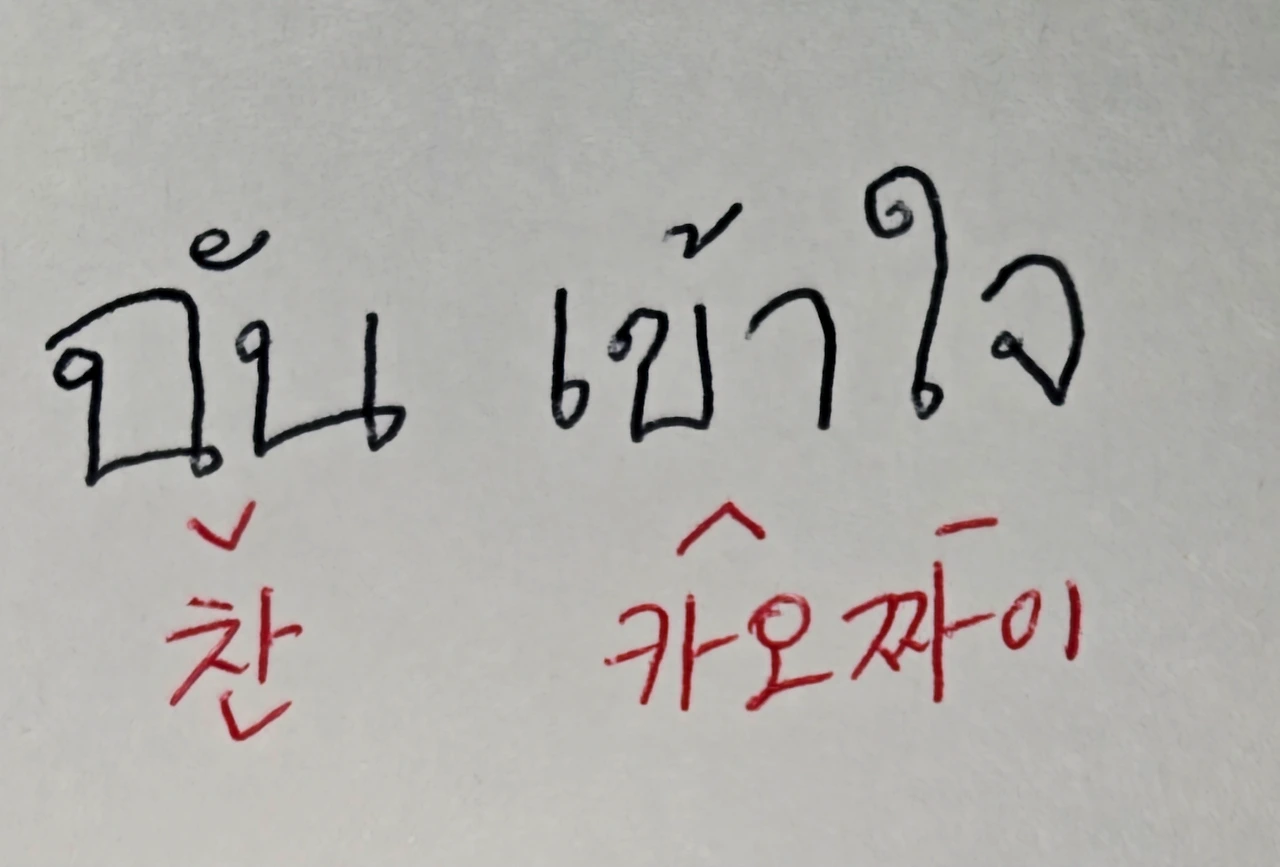 ฉัน เข้าใจ
찬 카오짜이